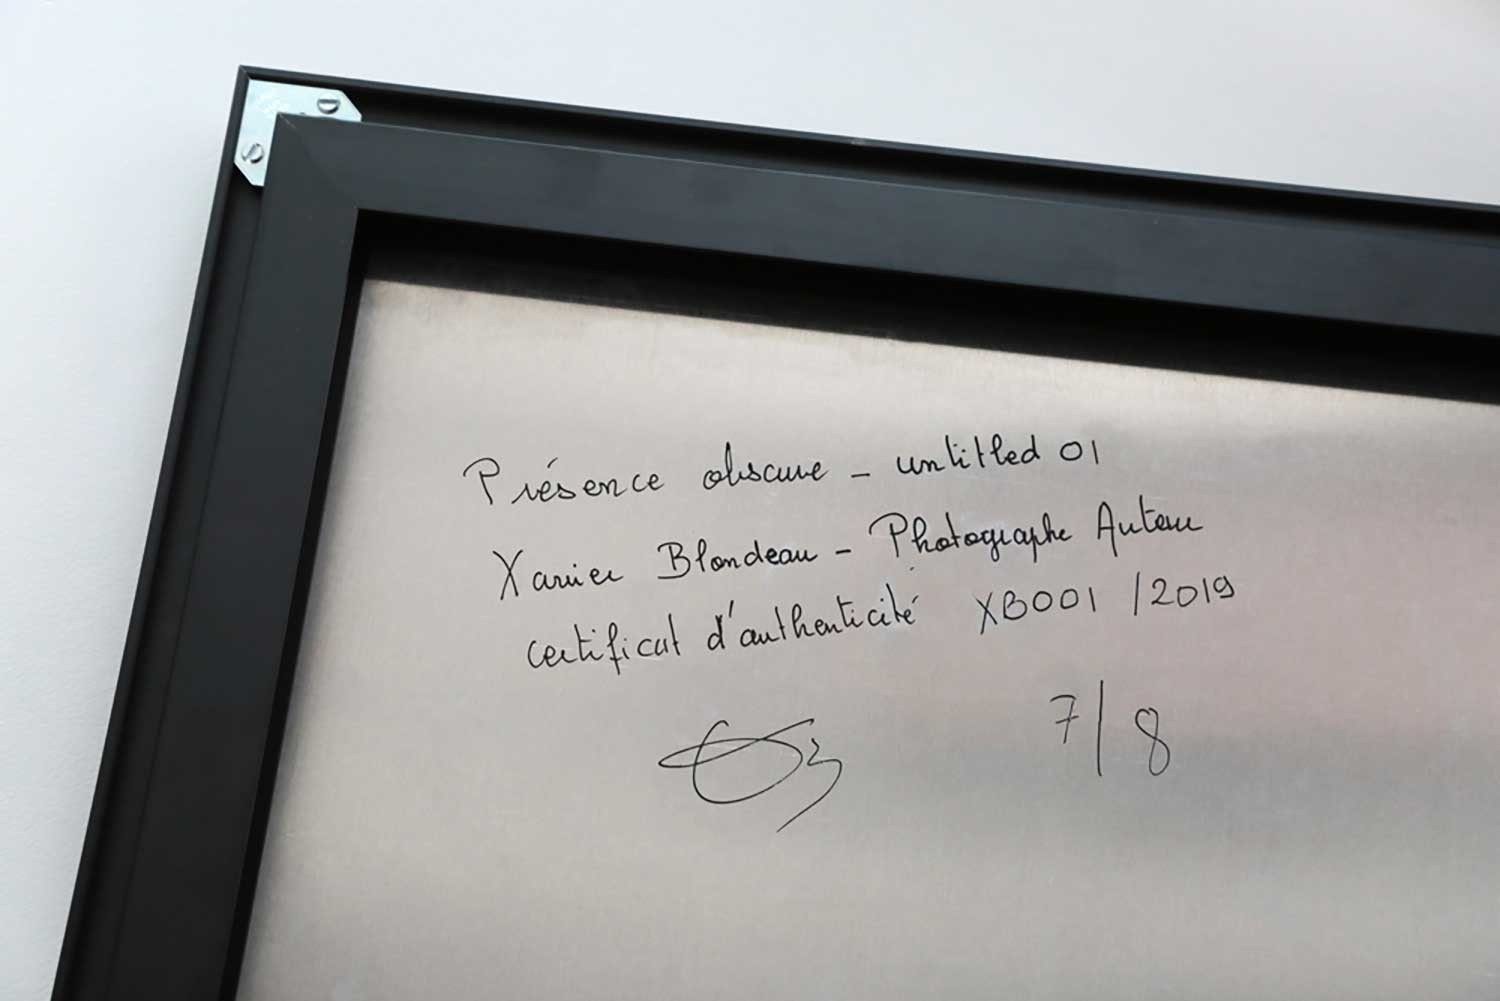 Présence obscure - untitled 01
Xavier Blondeau - Photographe Auteur
certificat d'authenticité XB001 /2019
7/8